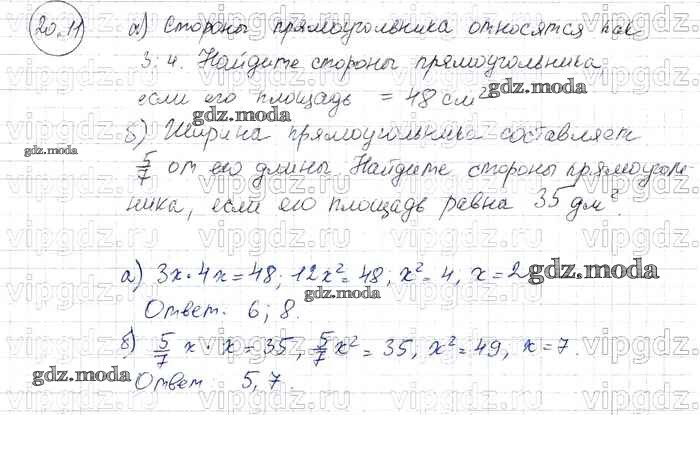 20.11 а) Стороны прямоугольника относятся как
3:4. Найдите стороны прямоугольника,
если его площадь = 48 см²
gdz.moda
gdz.moda
б) Ширина прямоугольника составляет
gdz.moda
5/7 от его длины. Найдите стороны прямоуголь
ника, если его площадь равна 35 дм².
а) 3x·4x=48; 12x²=48; x²=4, x=2
gdz.moda
gdz.moda
Ответ. 6; 8.
б) 5/7 x · x = 35, 5/7 x² = 35, x² = 49, x = 7.
gdz.moda
Ответ 5, 7.
vipgdz.ru